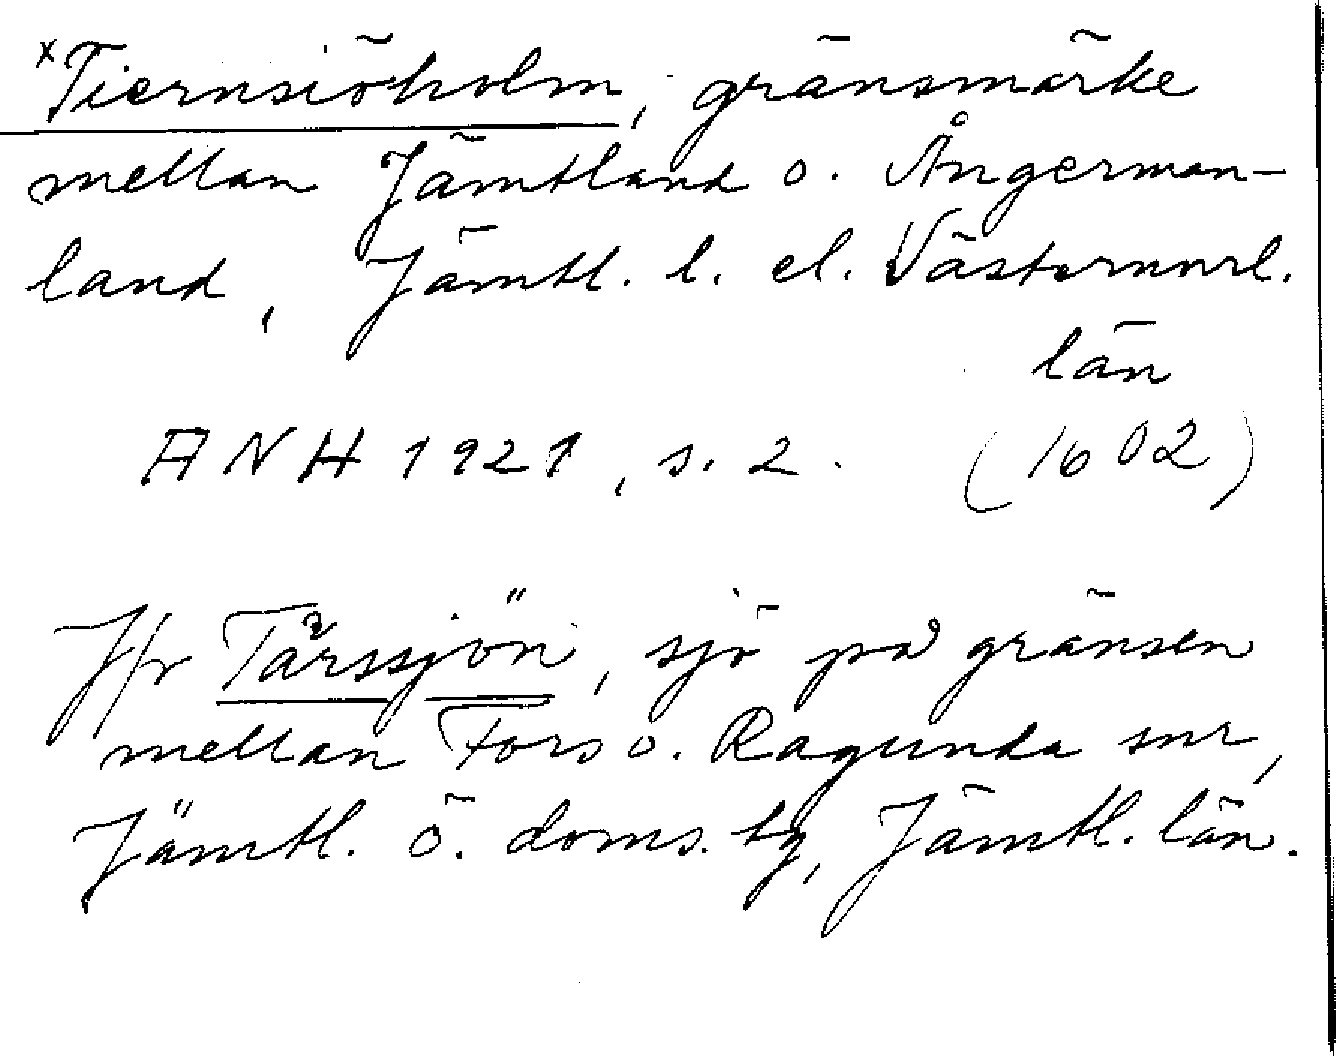 ×Tiernsiöholm, gränsmärke
mellan Jämtland o. Ångerman-
land, Jämtl. l. el. Västernorrl.
län
ANH 1921, s. 2. (1602)
Jfr Tårssjön, sjö på gränsen
mellan Fors o. Ragunda snr,
Jämtl. ö. doms. tg, Jämtl. län.